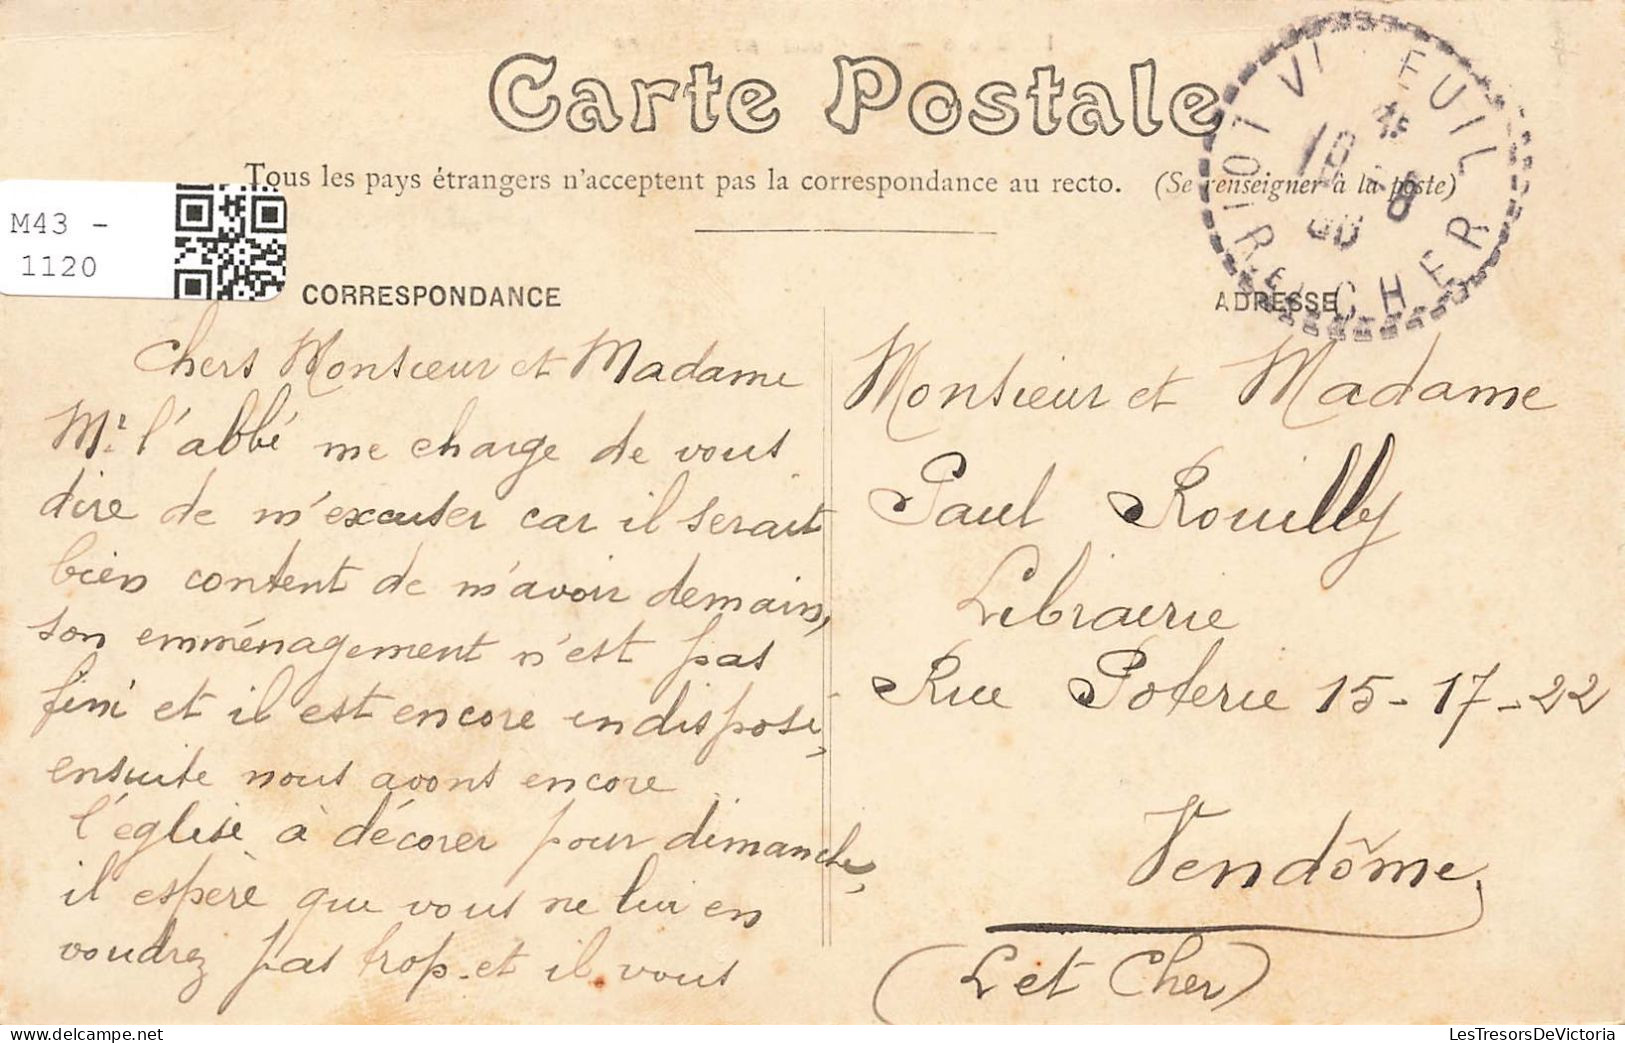 Carte Postale
Tous les pays étrangers n'acceptent pas la correspondance au recto. (Se renseigner à la poste)
M43 -
1120
CORRESPONDANCE
Chers Monsieur et Madame
Mr l'abbé me charge de vous
dire de m'excuser car il serait
bien content de m'avoir demain,
son emménagement n'est pas
fini et il est encore indisposé,
ensuite nous avons encore
l'église à décorer pour dimanche,
il espère que vous ne lui en
voudrez pas trop et il vous
ADRESSE
Monsieur et Madame
Paul Rouilly
Librairie
Rue Poterie 15-17-22
Vendôme,
(L et Cher)
LOIR-ET-CHER
LesTresorsDeVictoria.com